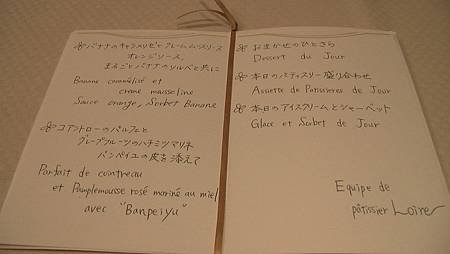 バナナのキャラメリゼとクレームムースリーヌ
オレンジソース、
まるごとバナナのソルベと共に
Banane caramélisé et
creme mousseline
Sauce orange, Sorbet Banane
コアントローのパルフェと
グレープフルーツのハチミツマリネ
バンペイユの皮を添えて
Parfait de cointreau
et Pamplemousse rosé mariné au miel
avec "Banpeiyu"
おまかせのひとさら
Dessert du Jour
本日のパティスリー盛り合わせ
Assiette de Patisseries de Jour
本日のアイスクリームとシャーベット
Glace et Sorbet de Jour
Equipe de
pâtissier Loire